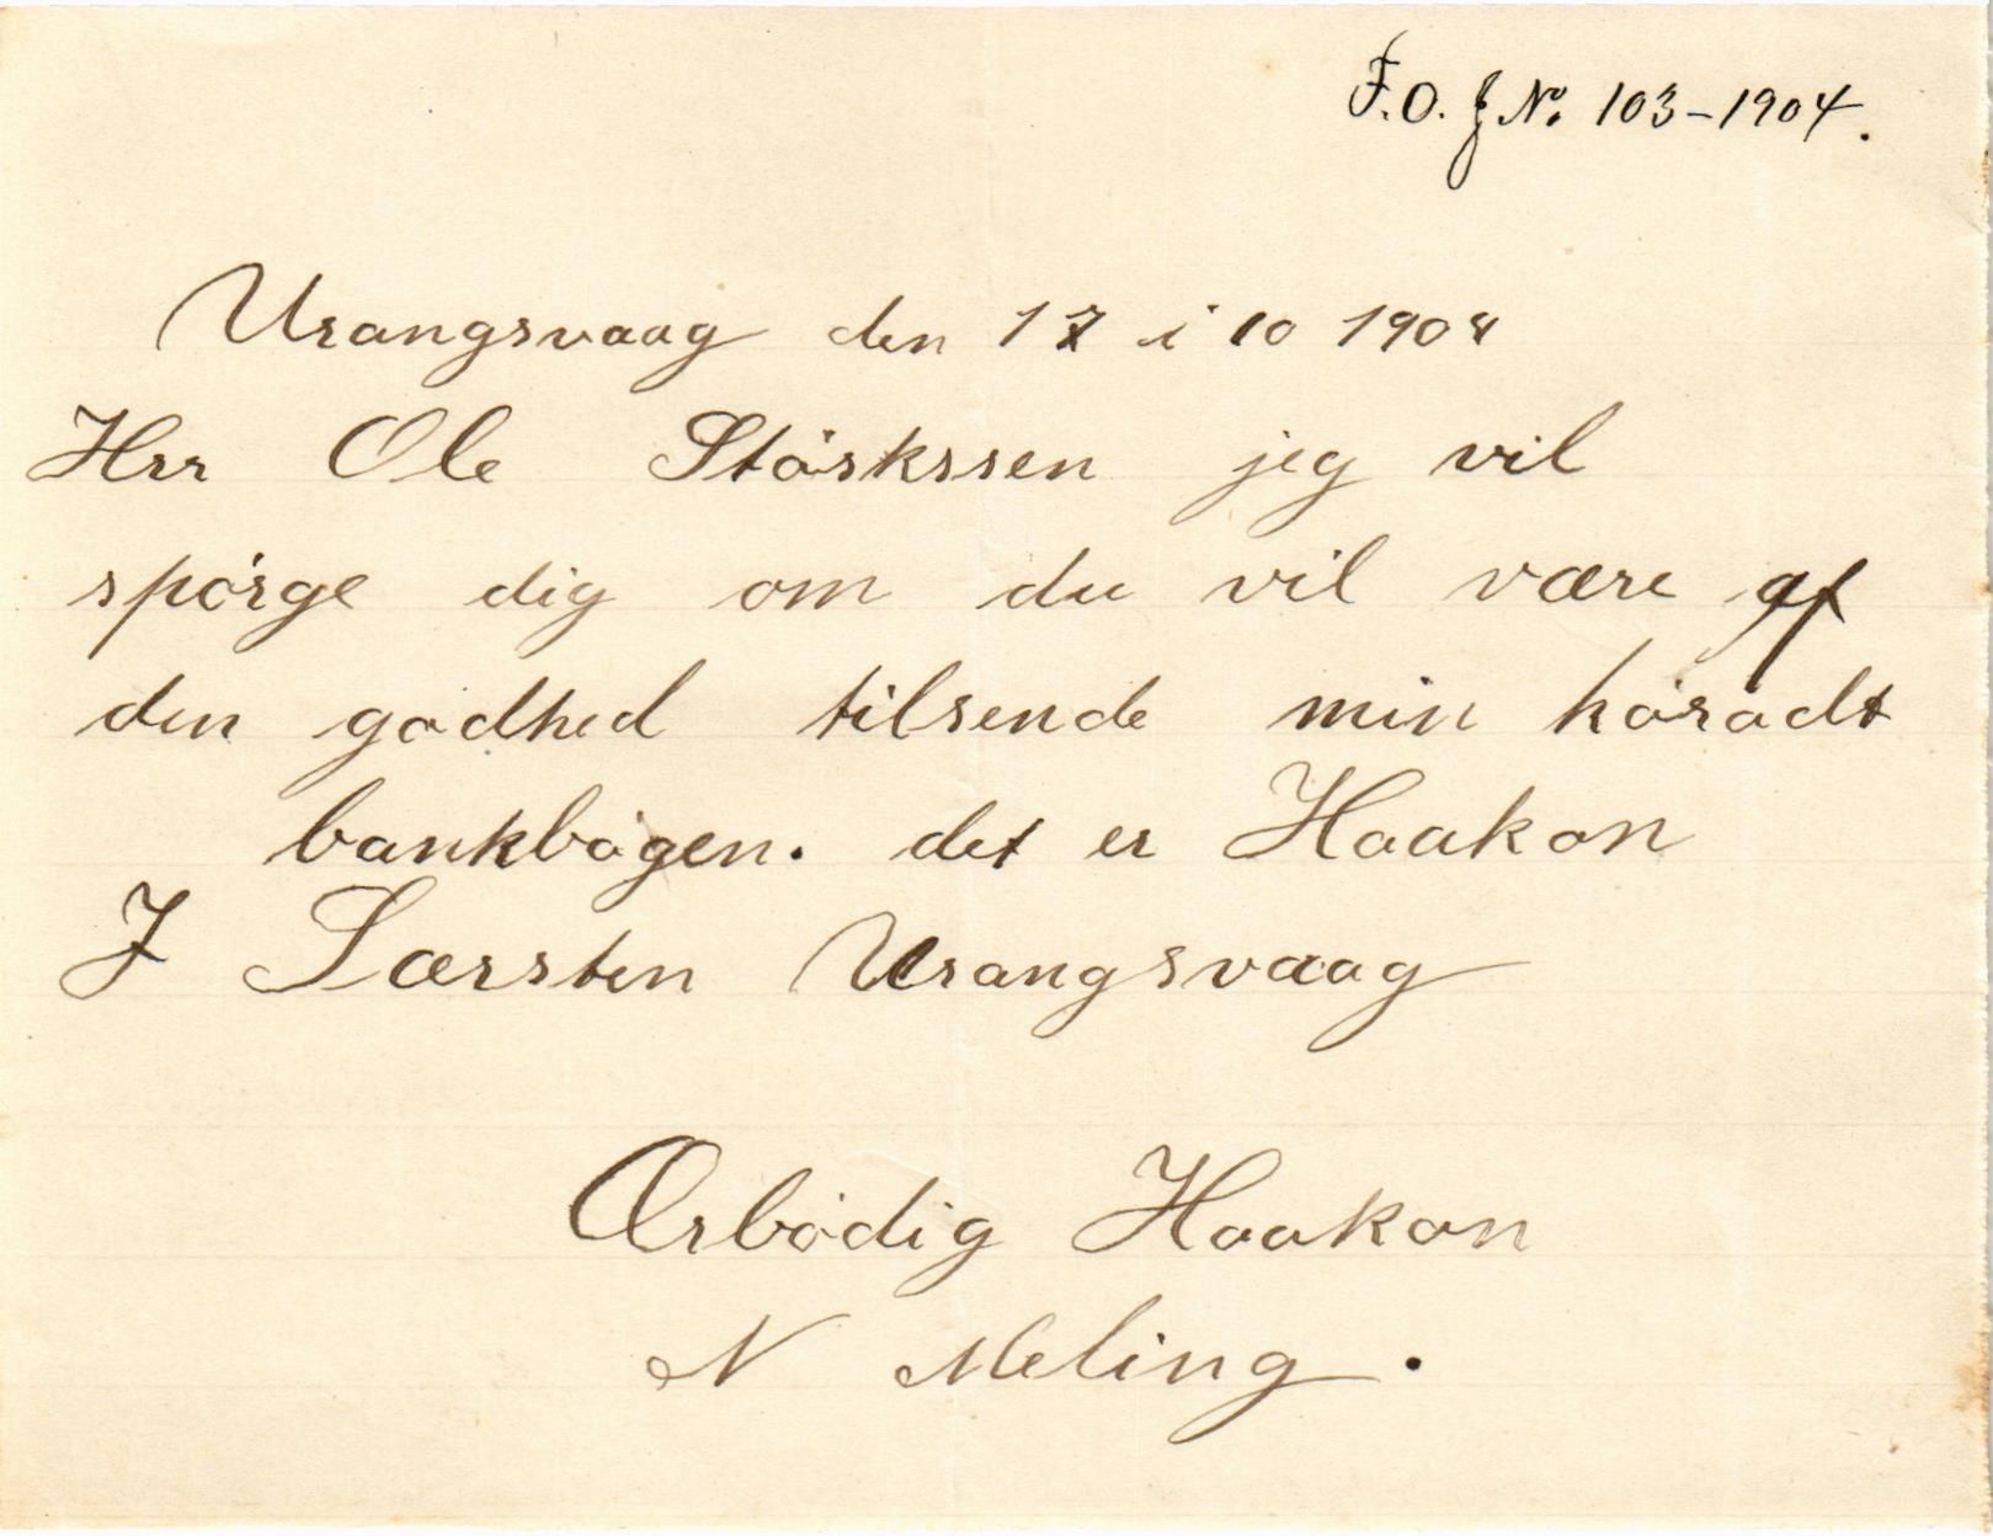 F.O. J No. 103-1904.
Urangsvaag den 17 i 10 1904
Herr Ole Störkssen jeg vil
spörge dig om du vil være af
den godhed tilsende min
bankbögen. det er Haakon
J Særsten Urangsvaag
Ærbödig Haakon
N Meling.